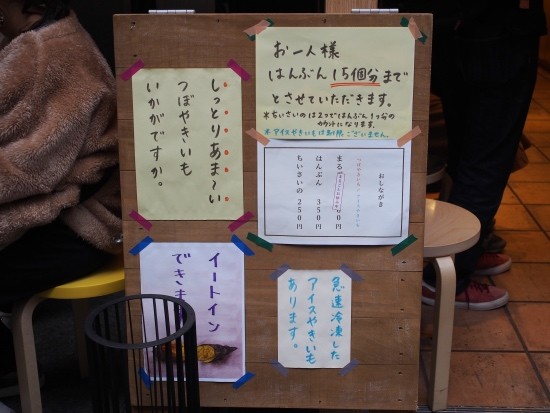 お一人様
はんぶん15個分まで
とさせていただきます。
*ちいさいのは2つではんぶん1つ分の
カウントになります。
*アイスやきいもは制限ございません。
しっとりあま〜い
つぼやきいも
いかがですか。
おしながき
まる
00円
はんぶん 350円
ちいさいの 250円
イートイン
できま
急速冷凍した
アイスやきいも
あります。